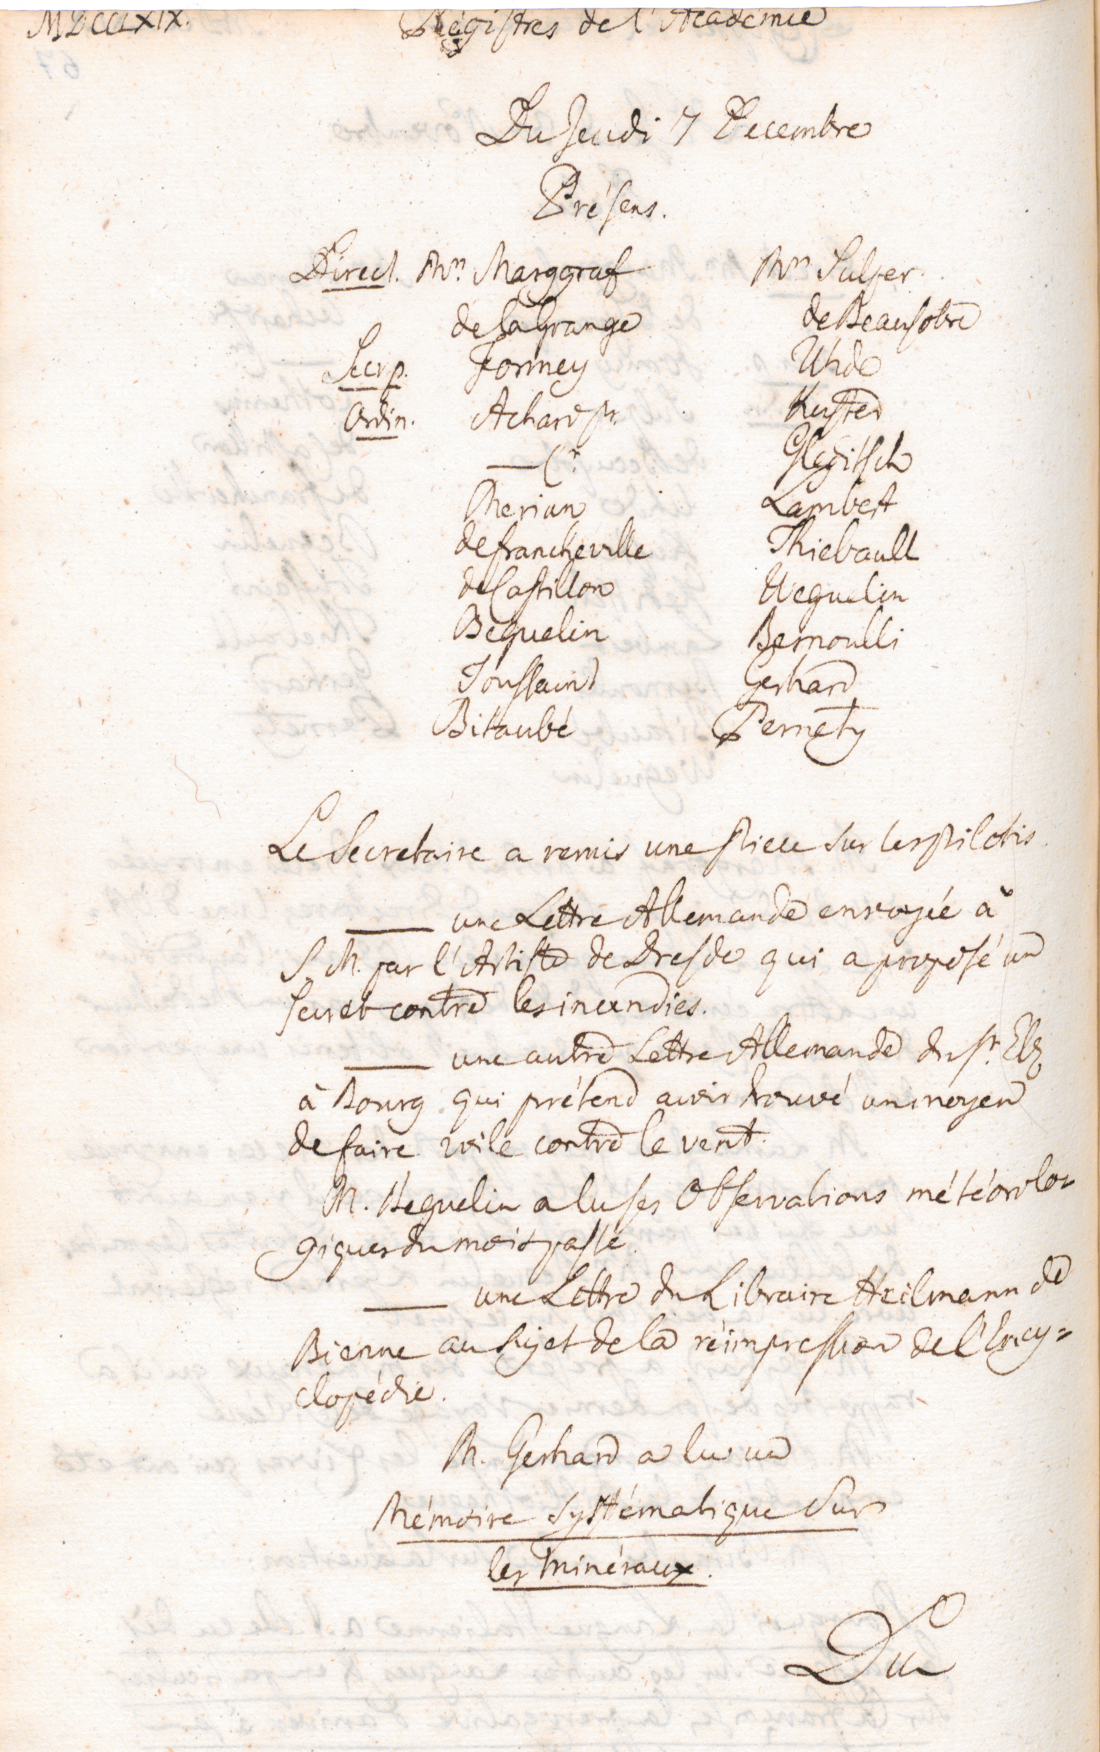 MDCCLXIX.
Régistres de l'Academie
Du Jeudi 7 Decembre
Présens.
Direct. Mrs Marggraf
de la Grange
Secr. p. Formey
Ordin. Achard pr.
Merian
de francheville
de Castillon
Beguelin
Toussaint
Bitaubé
Mrs Sulzer
de Beausobre
Uhde
Kuster
Gleditsch
Lambert
Thiebault
Weguelin
Bernoulli
Gerhard
Pernety
Le Secretaire a remis une piece sur les pilotis.
—— une Lettre Allemande envoyée à
S. M. par l'Artiste de Dresde qui a proposé un
secret contre les incendies.
—— une autre Lettre Allemande du Sr.
à Bourg qui prétend avoir trouvé un moyen
de faire voile contre le vent.
M. Beguelin a lu ses Observations météorolo-
giques du mois passé.
—— une Lettre du Libraire Heilmann de
Bienne au sujet de la réimpression de l'Ency=
clopédie.
M. Gerhard a lu un
Mémoire systématique sur
les minéraux.
Du